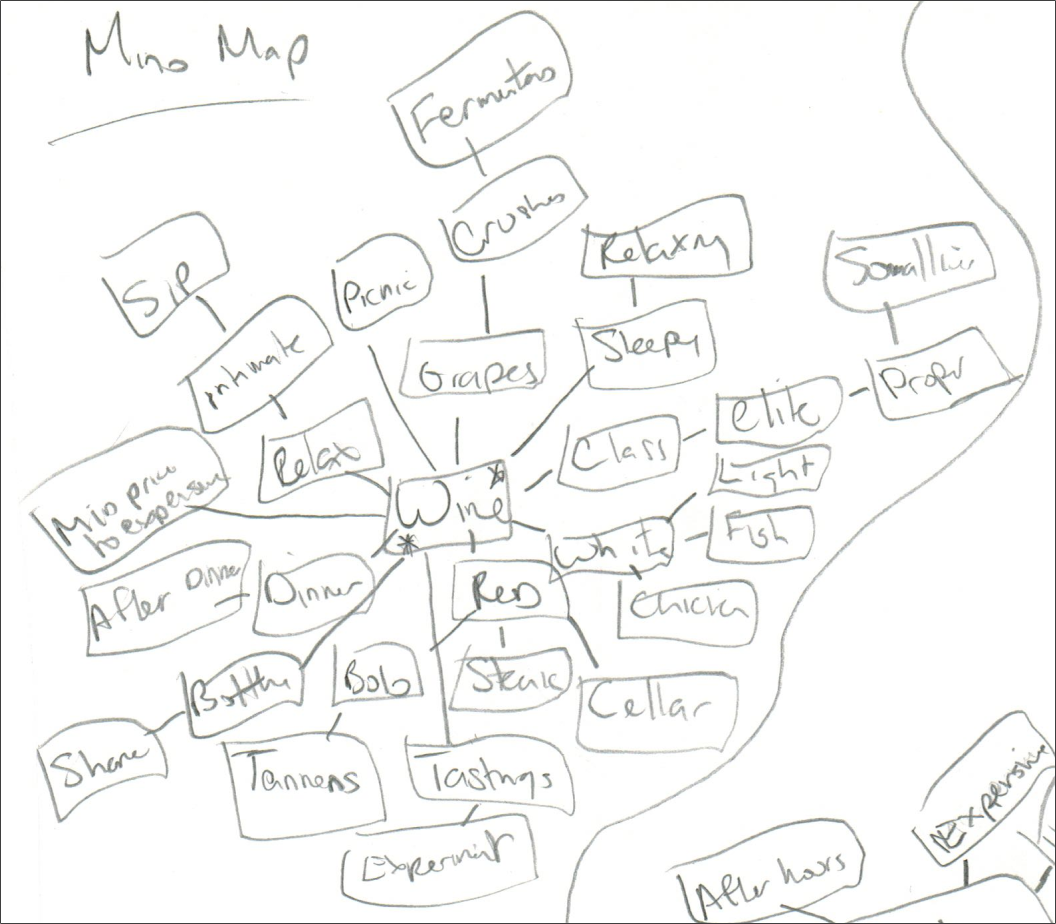 Mind Map
Fermentors
Crushes
Sip
Picnic
Relaxing
Somallier
Intimate
Grapes
Sleepy
Proper
Elite
Relax
Class
Light
Mid price
to expensive
Wine
White
Fish
After Dinner
Dinner
Red
Chicken
Bottle
Bold
Steak
Cellar
Share
Tannens
Tastings
Experiment
Expensive
After hours